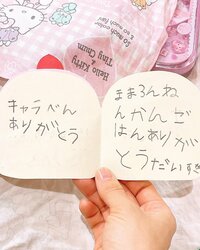 Hello Kitty
&
Tiny Chum
So much color
So much fair
キャラべん
ありがとう
ままろんね
んかんご
はんありが
とうだいすき